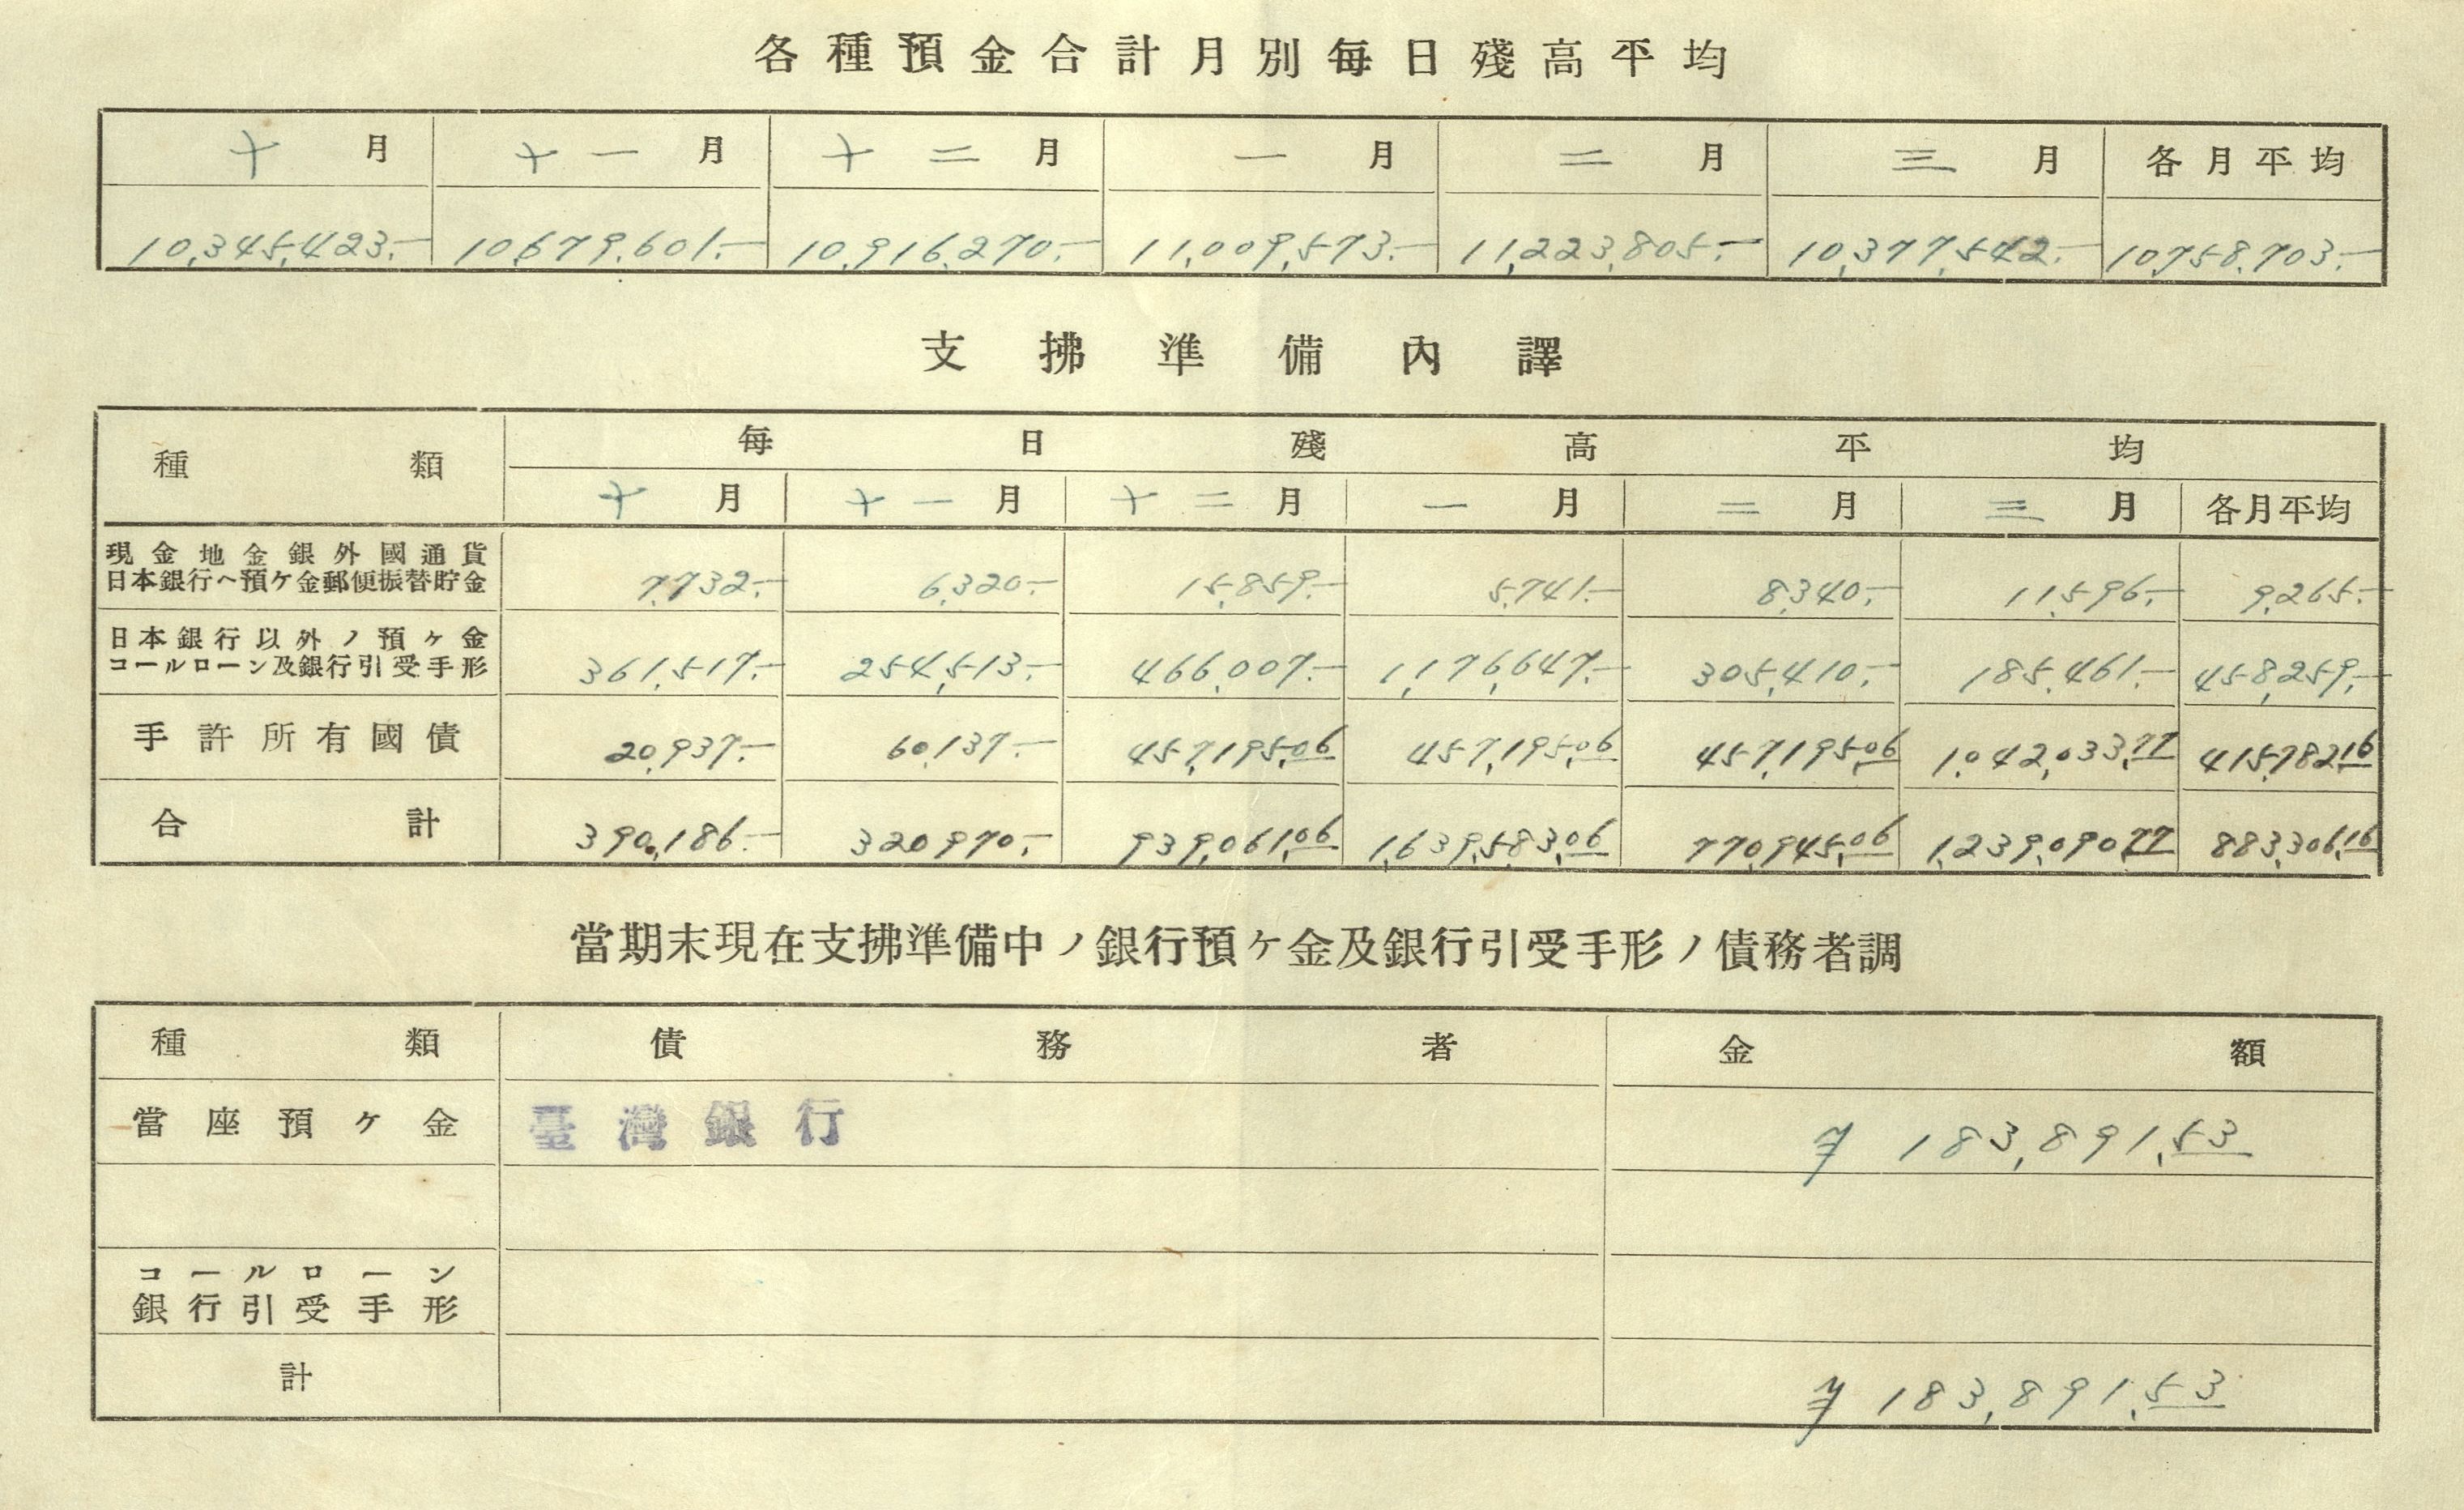 各種預金合計月別每日殘高平均
十月 十一月 十二月 一月 二月 三月 各月平均
10,345,423.— 10,679,601.— 10,916,270.— 11,009,573.— 11,223,805.— 10,377,542.— 10,758,703.—
支拂準備內譯
種類 每日殘高平均
十月 十一月 十二月 一月 二月 三月 各月平均
現金地金銀外國通貨
日本銀行ヘ預ケ金郵便振替貯金 7,732.— 6,320.— 15,859.— 5,741.— 8,340.— 11,596.— 9,265.—
日本銀行以外ノ預ヶ金
コールローン及銀行引受手形 361,517.— 254,513.— 466,007.— 1,176,647.— 305,410.— 185,461.— 458,259.—
手許所有國債 20,937.— 60,137.— 457,195.06 457,195.06 457,195.06 1,042,033.77 415,782.16
合計 390,186.— 320,970.— 939,061.06 1,639,583.06 770,945.06 1,239,090.77 883,306.16
當期末現在支拂準備中ノ銀行預ヶ金及銀行引受手形ノ債務者調
種類 債務者 金額
當座預ケ金 臺灣銀行 ¥ 183,891.53
コールローン
銀行引受手形
計 ¥ 183,891.53